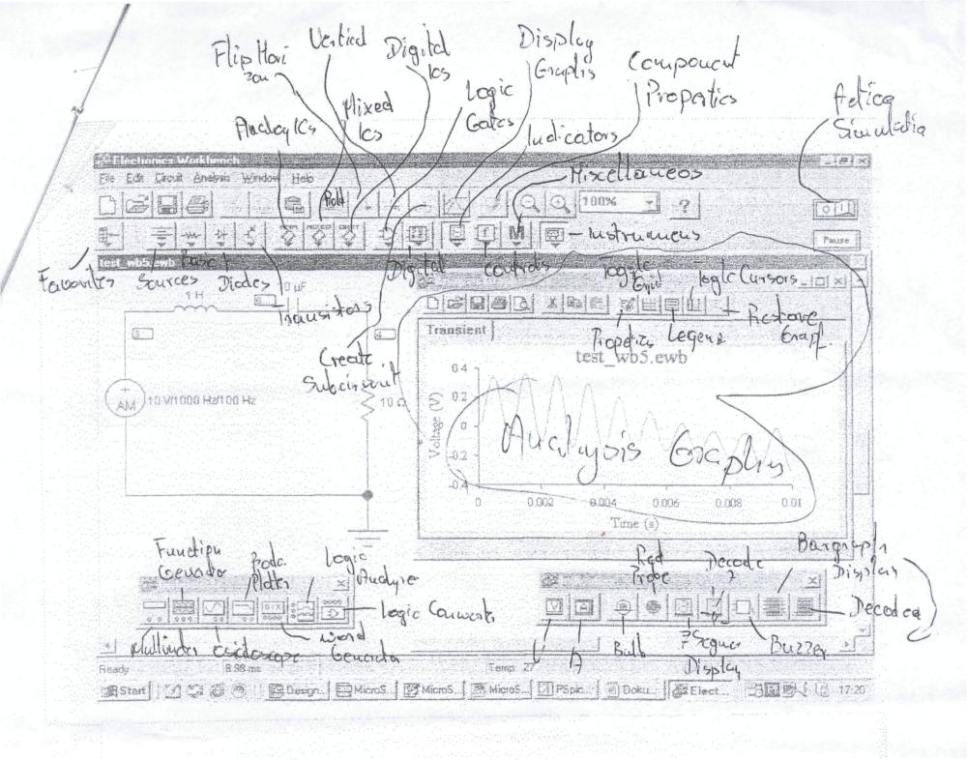 Flip Hori
zon
Vertical
Digital
Ics
Display
Graphs
Component
Properties
Analog ICs
Mixed
Ics
Logic
Gates
Indicators
Miscellaneos
Electronics Workbench
File Edit Circuit Analysis Window Help
100%
?
Pause
Favourites
Sources
Basic
Diodes
Transistors
Digital
Controls
Instruments
test_wb5.ewb
1 H
0
0
0
AM
10 V/1000 Hz/100 Hz
10 Ω
Create
Subcircuit
Toggle
Grid
Toggle Cursors
Properties
Legend
Restore
Graph
Transient
test_wb5.ewb
0.4
0.2
0
-0.2
-0.4
Voltage (V)
0
0.002
0.004
0.006
0.008
0.01
Time (s)
Analysis Graphs
Function
Generator
Bode
Plotter
Logic
Analyser
Multimeter
Oscilloscope
Word
Generator
Red
Probe
Bargraph
Displays
V
A
Bulb
7 Segment
Display
Buzzer
Ready
8.98 ms
Temp: 27
Start
Design...
MicroS...
MicroS...
MicroS...
PSpic...
Doku...
Elect...
17:20